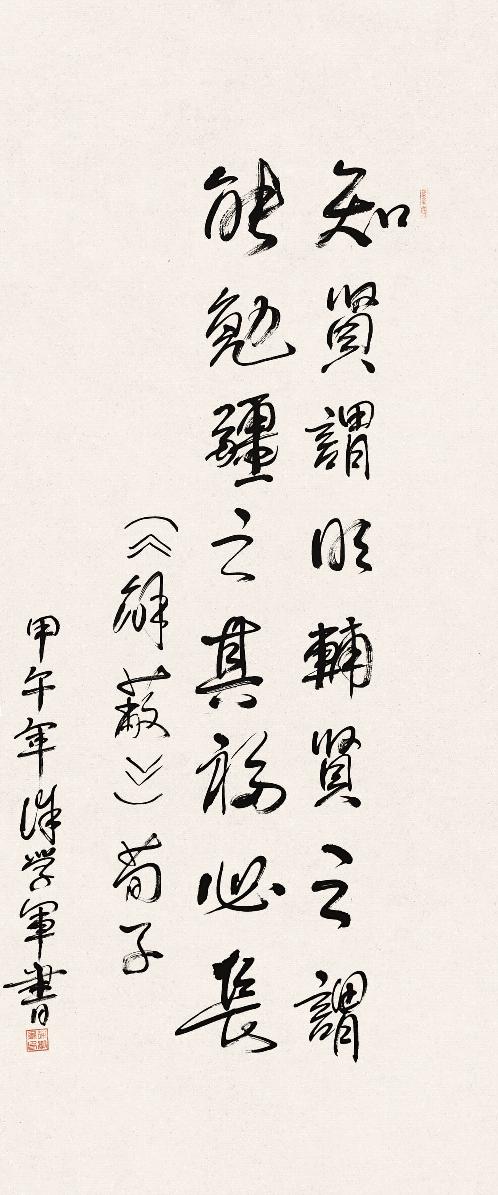 知賢謂明輔賢之謂
能勉疆之其福必長
(《解蔽》)荀子
甲午年 学軍書